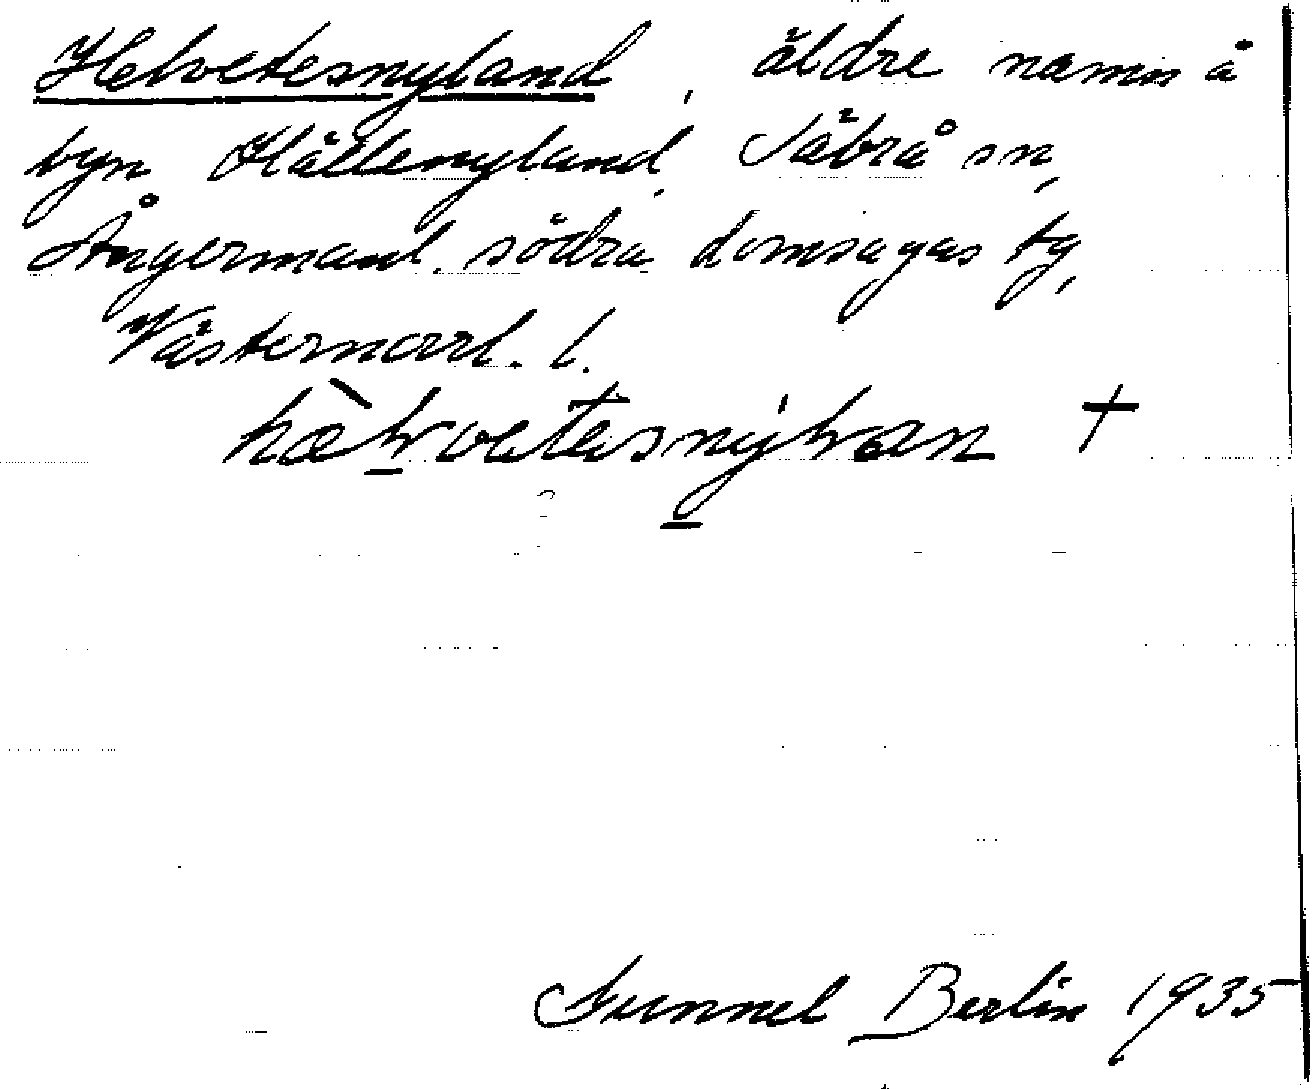 Helvetesnyland, äldre namn å
byn Hällenyland, Säbrå sn,
Ångermanl. södra domsagas tg,
Västernorrl. l.
†
Gunnel Berlin 1935